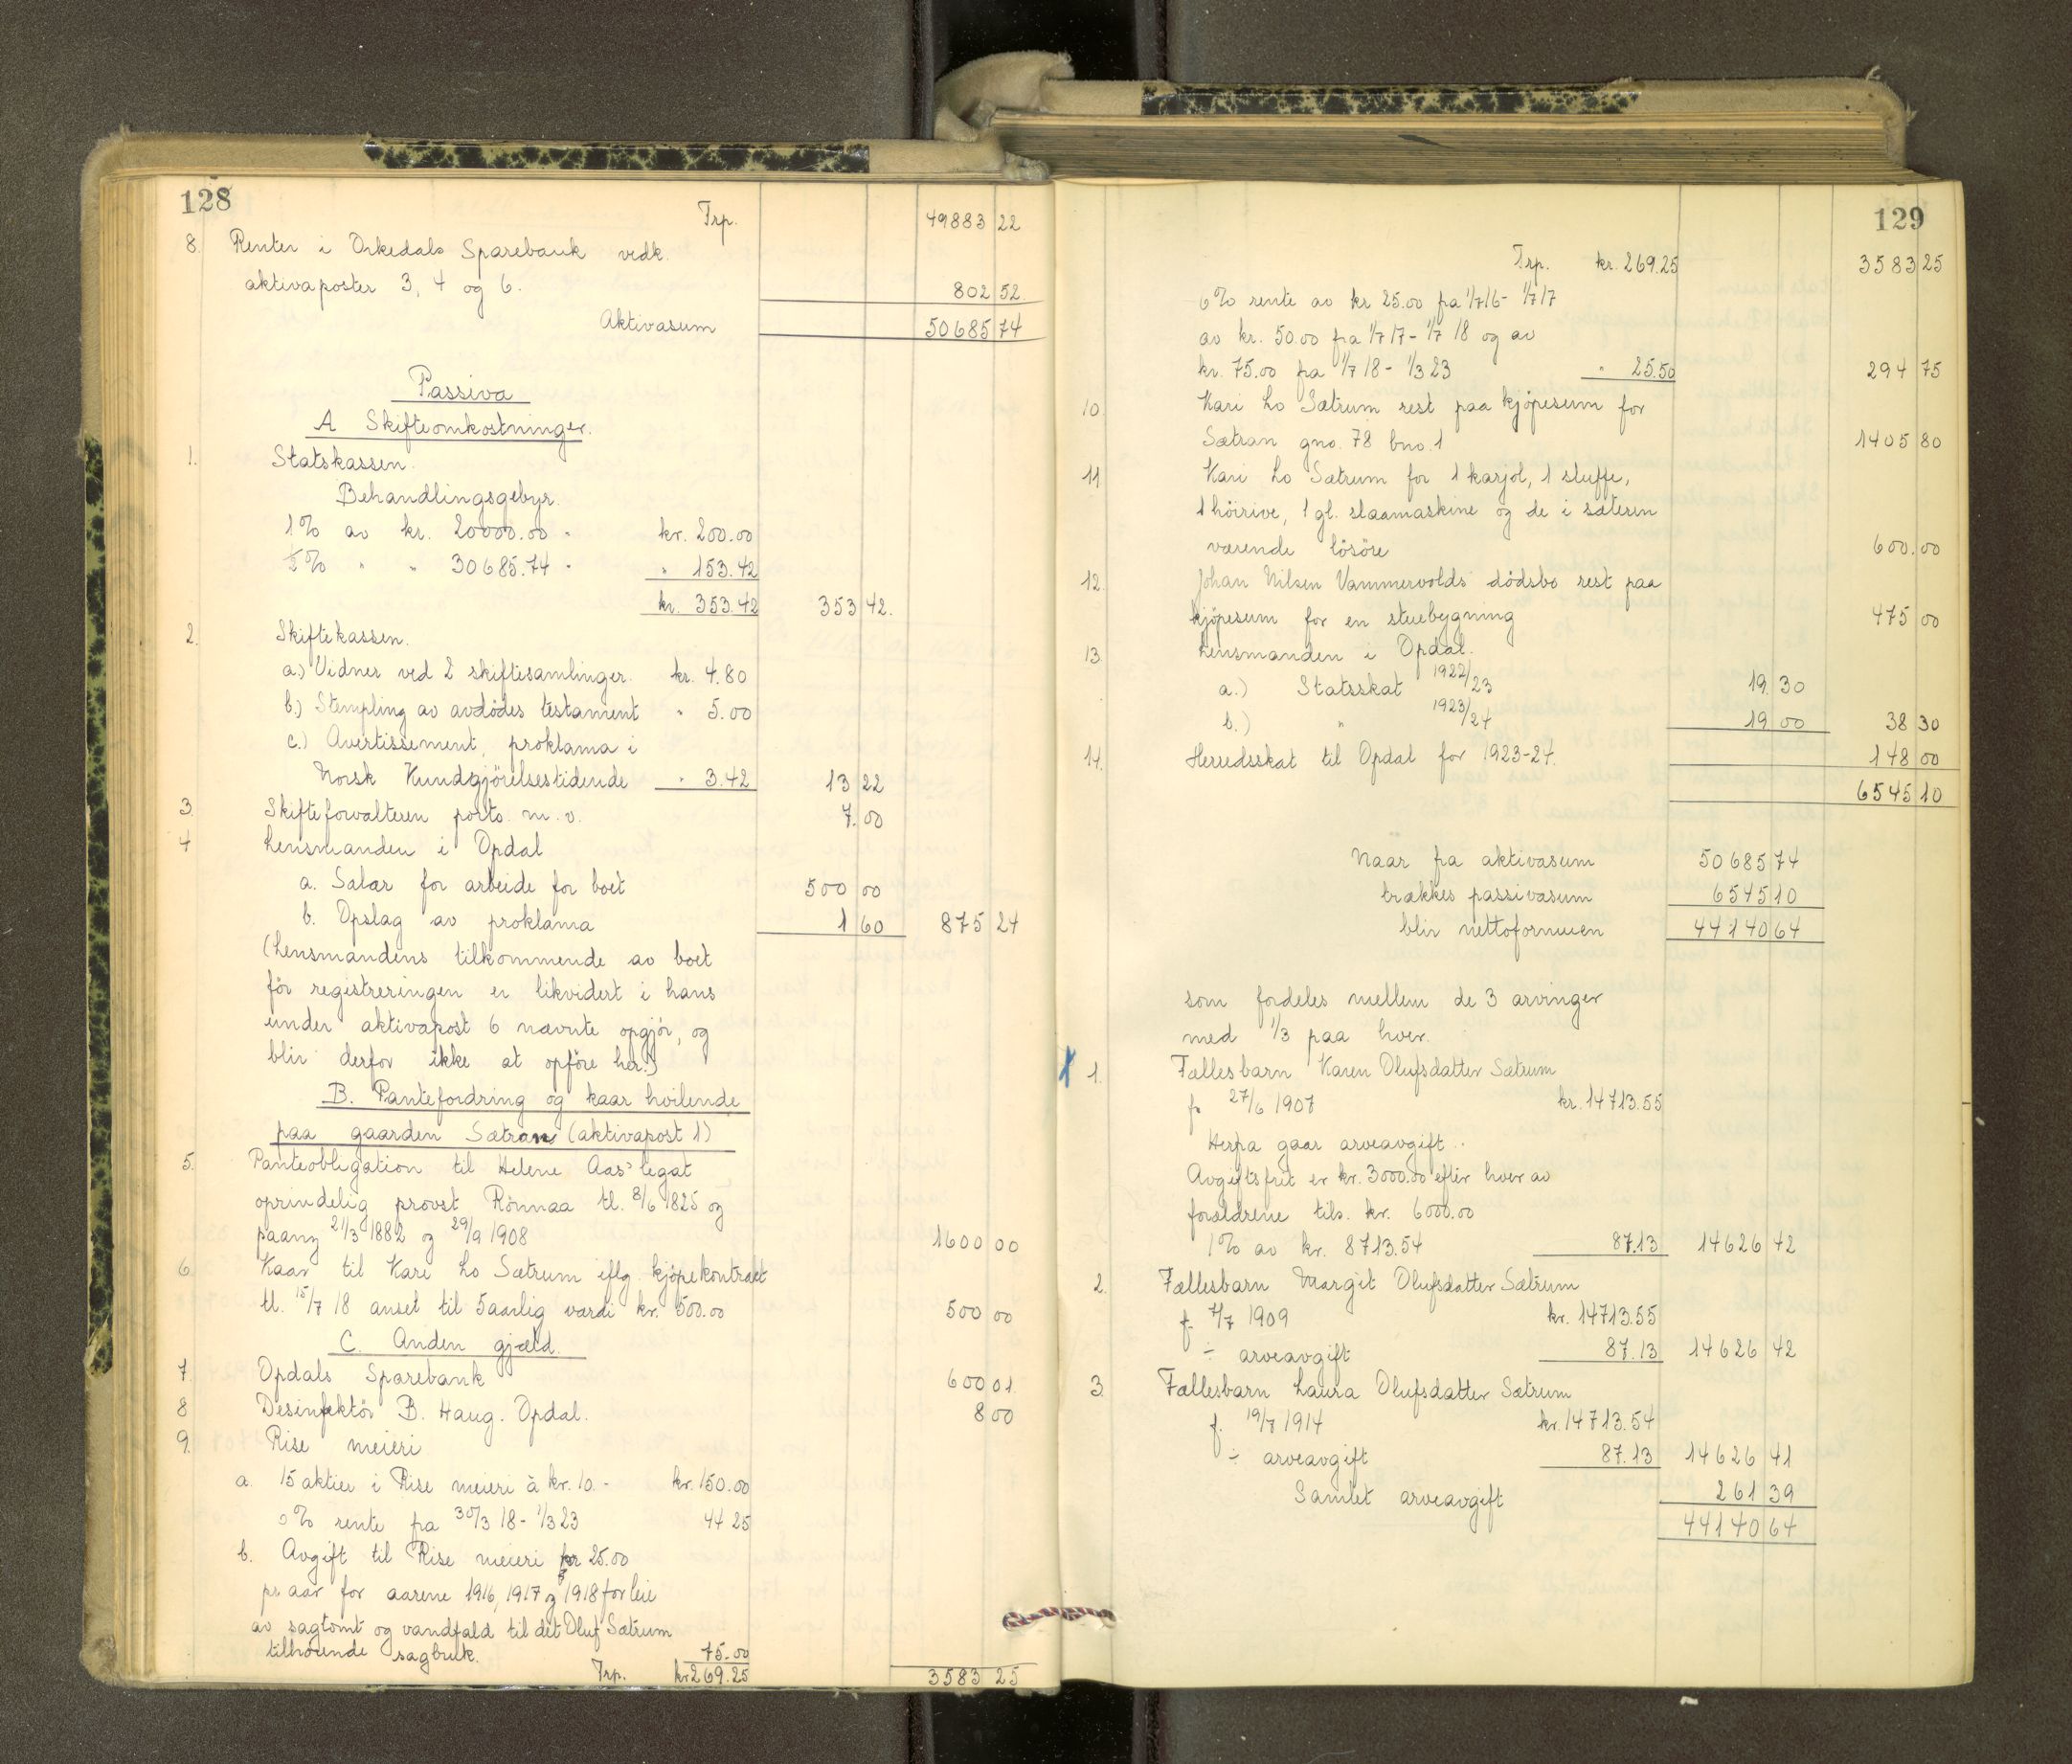 128
Trp. 49883 22
8. Renter i Orkedals Sparebank vedk.
aktivaposter 3, 4 og 6. 802 52
Aktivasum 50685 74
Passiva
A Skifteomkostninger.
1. Statskassen.
Behandlingsgebyr.
1% av kr. 20000.00 - kr. 200.00
½% " " 30685.74 - " 153.42
kr. 353.42 353 42.
2. Skiftekassen.
a.) Vidner ved 2 skiftesamlinger. kr. 4.80
b.) Stempling av avdödes testament " 5.00
c.) Avertissement, proklama i
Norsk Kundgjörelsestidende " 3.42 13 22
3. Skifteforvalteren porto m.v. 7.00
4 Lensmanden i Opdal
a. Salær for arbeide for boet 500 00
b. Opslag av proklama 1 60 875 24
(Lensmandens tilkommende av boet
för registreringen er likvidert i hans
under aktivapost 6 nævnte opgjör, og
blir derfor ikke at opföre her.)
B. Pantefordring og kaar hvilende
paa gaarden Sætran (aktivapost 1)
5. Panteobligation til Helene Aas' legat
oprindelig provst Rönnaa tl. 8/6 1825 og
paany 21/3 1882 og 29/9 1908 1600 00
6. Kaar til Kari Lo Sætrum iflg. kjöpekontract
tl. 15/7 18 anset til 5aarlig værdi kr. 500.00 500 00
C. Anden gjæld.
7. Opdals Sparebank 600 01
8 Desinfektör B. Haug. Opdal. 8 00
9. Rise meieri
a. 15 aktier i Rise meieri à kr. 10.- kr. 150.00
6% rente fra 30/3 18 - 1/3 23 44 25
b. Avgift til Rise meieri kr 25.00
pr. aar for aarene 1916, 1917 og 1918 for leie
av sagtomt og vandfald til det Oluf Sætrum
tilhörende sagbruk. 75.00
Trp. kr 269.25 3583 25
129
Trp. kr. 269.25 3583 25
6% rente av kr 25.00 fra 1/7 16 - 1/7 17
av kr. 50.00 fra 1/7 17 - 1/7 18 og av
kr. 75.00 fra 1/7 18 - 1/3 23 " 25.50 294 75
10. Kari Lo Sætrum rest paa kjöpesum for
Sætran gno. 78 bno. 1 1405 80
11 Kari Lo Sætrum for 1 karjol, 1 sluffe,
1 höirive, 1 gl. slaamaskine og de i sæteren
værende lösöre 600.00
12. Johan Nilsen Vammervolds dödsbo rest paa
kjöpesum for en stuebygning 475 00
13. Lensmanden i Opdal.
a.) Statsskat 1922/23 19. 30
b.) " 1923/24 19 00 38 30
14. Herredsskat til Opdal for 1923-24. 148 00
6545 10
Naar fra aktivasum 50685 74
trækkes passivasum 6545 10
blir nettoformuen 44140 64
som fordeles mellem de 3 arvinger
med 1/3 paa hver.
1. Fællesbarn Karen Olufsdatter Sætrum
f. 27/6 1907 kr. 14713.55
Herfra gaar arveavgift.
Avgiftsfrit er kr. 3000.00 efter hver av
forældrene tils. kr. 6000.00
1% av kr. 8713.54 87.13 14626 42
2. Fællesbarn Margit Olufsdatter Sætrum
f. 7/7 1909 kr. 14713.55
÷ arveavgift 87.13 14626 42
3. Fællesbarn Laura Olufsdatter Sætrum
f. 19/7 1914 kr. 14713.54
÷ arveavgift 87.13 14626 41
Samlet arveavgift 261 39
44140 64